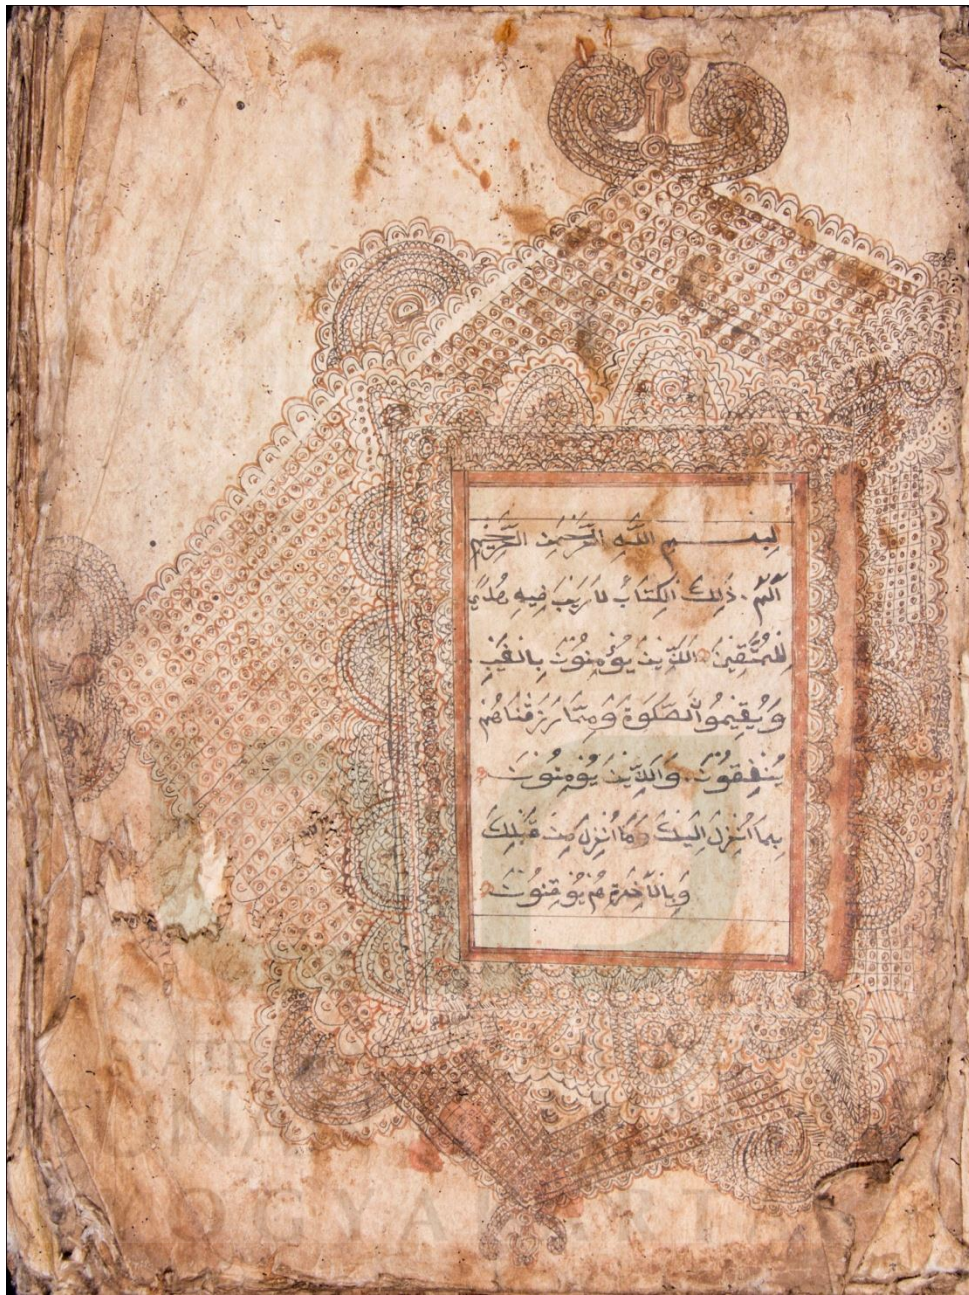 بِسْمِ اللَّهِ الرَّحْمَنِ الرَّحِيمِ
الٓمّٓ ذَٰلِكَ الْكِتَابُ لَا رَيْبَ فِيهِ هُدًى
لِلْمُتَّقِينَ الَّذِينَ يُؤْمِنُونَ بِالْغَيْبِ
وَيُقِيمُونَ الصَّلَوةَ وَمِمَّا رَزَقْنَاهُمْ
يُنْفِقُونَ وَالَّذِينَ يُؤْمِنُونَ
بِمَا أُنْزِلَ إِلَيْكَ وَمَا أُنْزِلَ مِنْ قَبْلِكَ
وَبِالْآخِرَةِ هُمْ يُوقِنُونَ
STATE
SUNAN
YOGYAKARTA